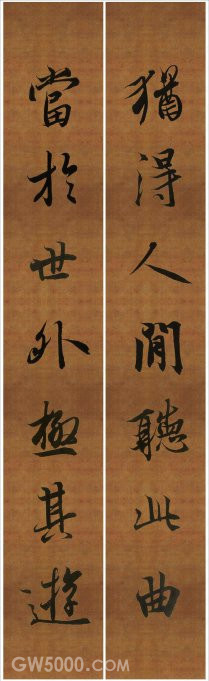 猶得人間聽此曲
當於世外極其遊
GW5000.com